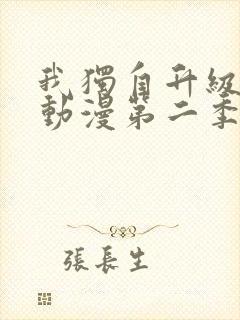 我獨自升級
動漫第二季
張長生